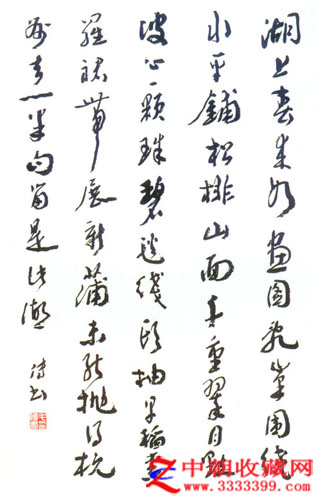 湖上春来似畫图乱峯围繞
水平鋪松排山面千重翠月點
波心一颗珠碧毯线頭抽早稻青
羅裙帶展新蒲未能抛得杭
州去一半勾留是此湖
书
中旭收藏网
www.3333399.com